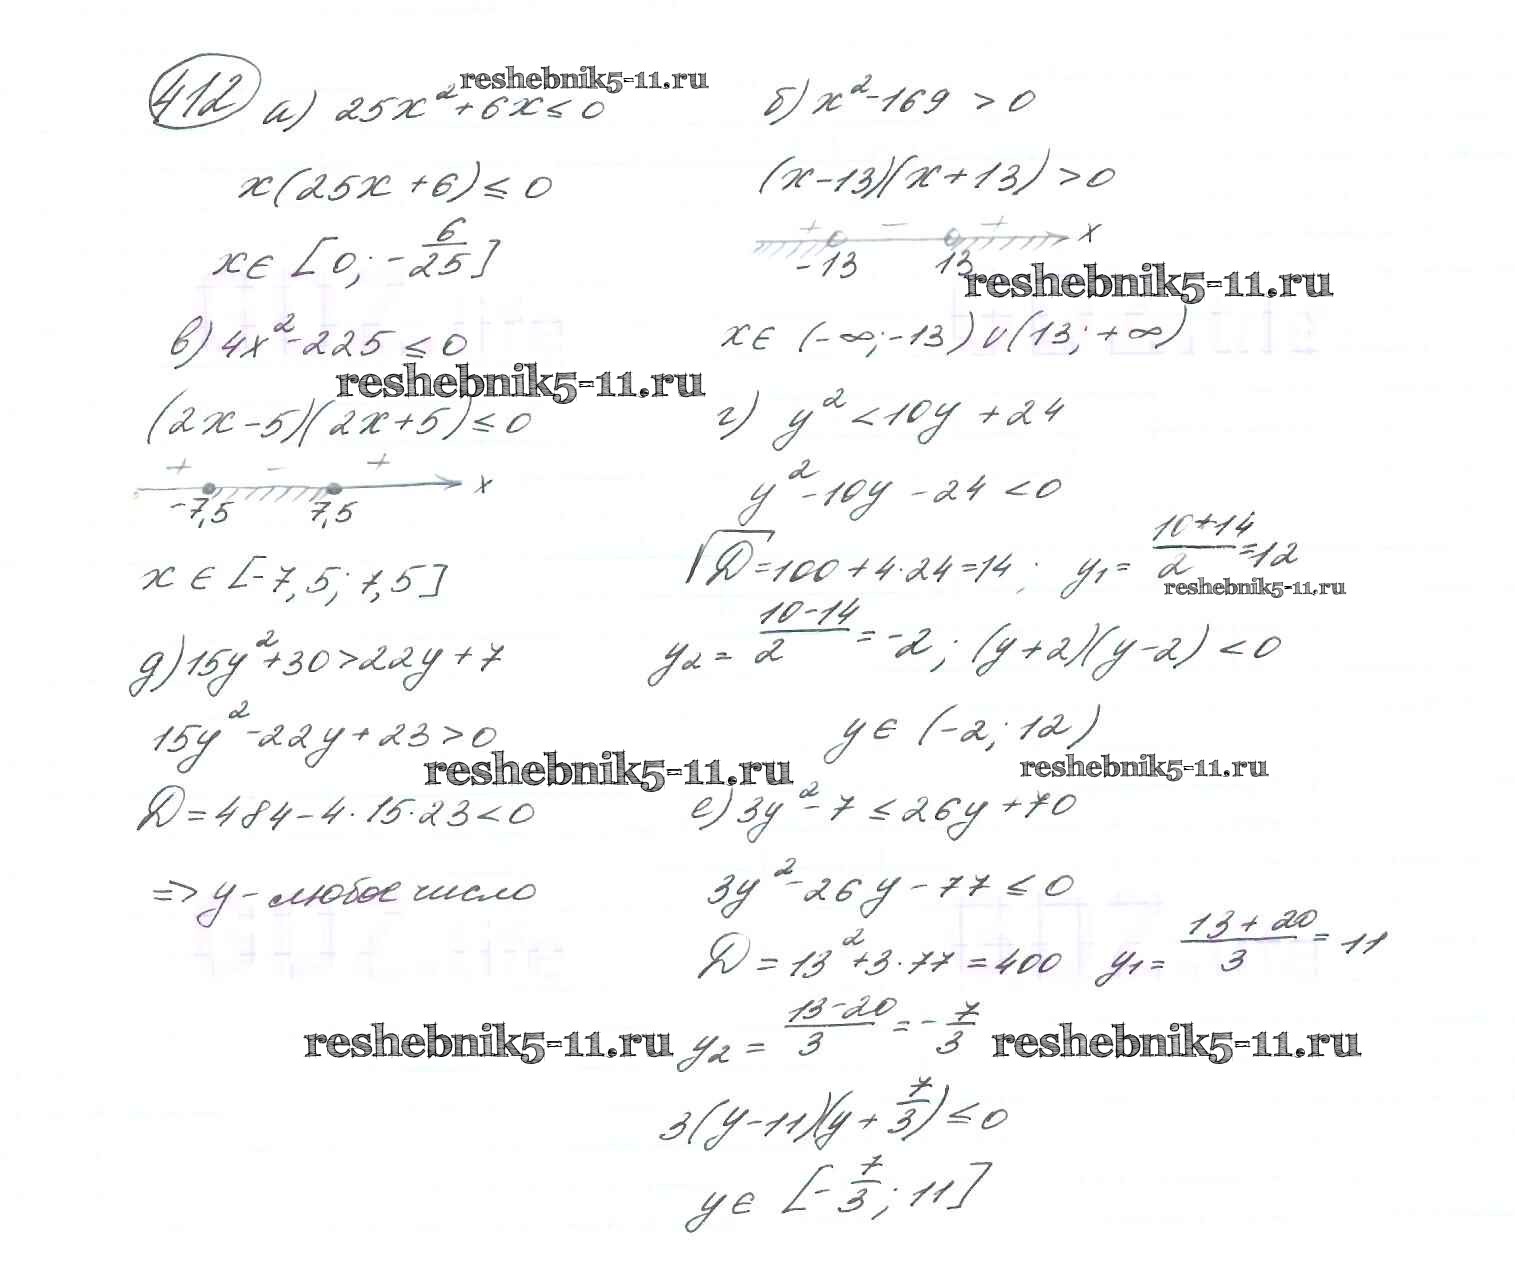 412 а) 25x² + 6x ≤ 0
reshebnik5-11.ru
x(25x + 6) ≤ 0
x ∈ [0; -6/25]
б) x² - 169 > 0
(x - 13)(x + 13) > 0
+ - + x
-13 13
reshebnik5-11.ru
x ∈ (-∞; -13) ∪ (13; +∞)
в) 4x² - 225 ≤ 0
reshebnik5-11.ru
(2x - 5)(2x + 5) ≤ 0
+ - + x
-7,5 7,5
x ∈ [-7,5; 7,5]
г) y² < 10y + 24
y² - 10y - 24 < 0
√D = 100 + 4·24 = 14; y₁ = (10 + 14)/2 = 12
reshebnik5-11.ru
y₂ = (10 - 14)/2 = -2; (y + 2)(y - 2) < 0
y ∈ (-2; 12)
reshebnik5-11.ru
д) 15y² + 30 > 22y + 7
15y² - 22y + 23 > 0
reshebnik5-11.ru
D = 484 - 4·15·23 < 0
=> y - любое число
е) 3y² - 7 ≤ 26y + 70
3y² - 26y - 77 ≤ 0
D = 13² + 3·77 = 400 y₁ = (13 + 20)/3 = 11
reshebnik5-11.ru
y₂ = (13 - 20)/3 = -7/3
reshebnik5-11.ru
3(y - 11)(y + 7/3) ≤ 0
y ∈ [-7/3; 11]